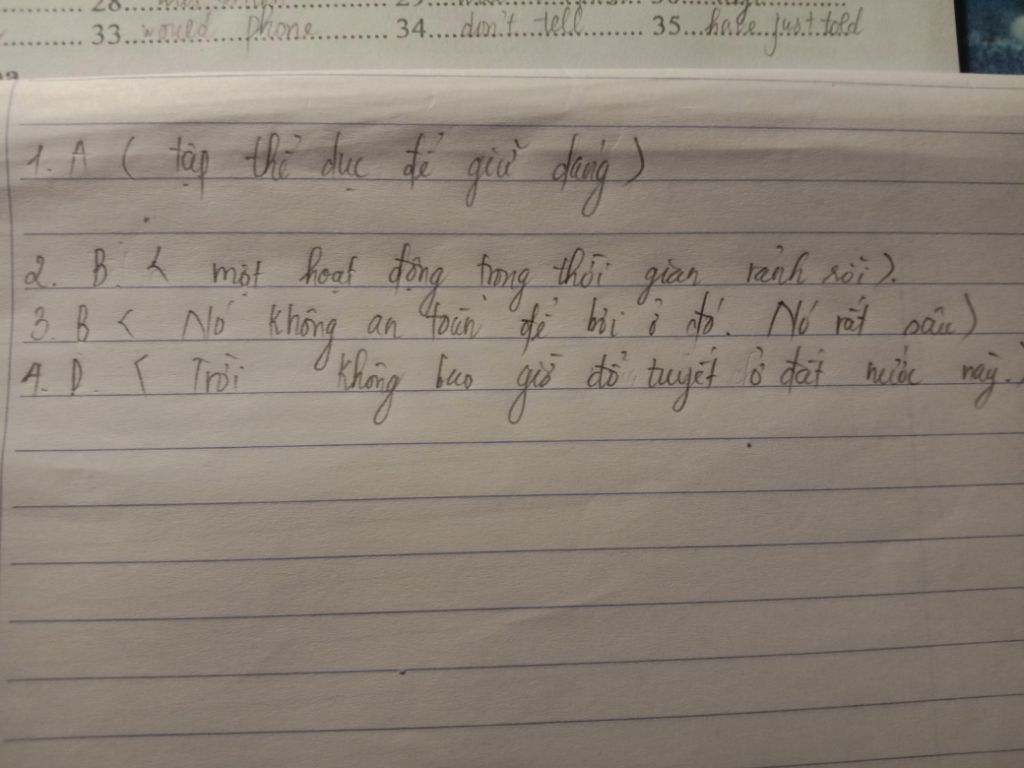 28
33 would phone 34 don't tell 35 have just told
1. A ( tập thể dục để giữ dáng )
2. B. ( một hoạt động trong thời gian rảnh rỗi ).
3. B ( Nó không an toàn để bơi ở đó. Nó rất sâu )
4. D. ( Trời không bao giờ đổ tuyết ở đất nước này. )